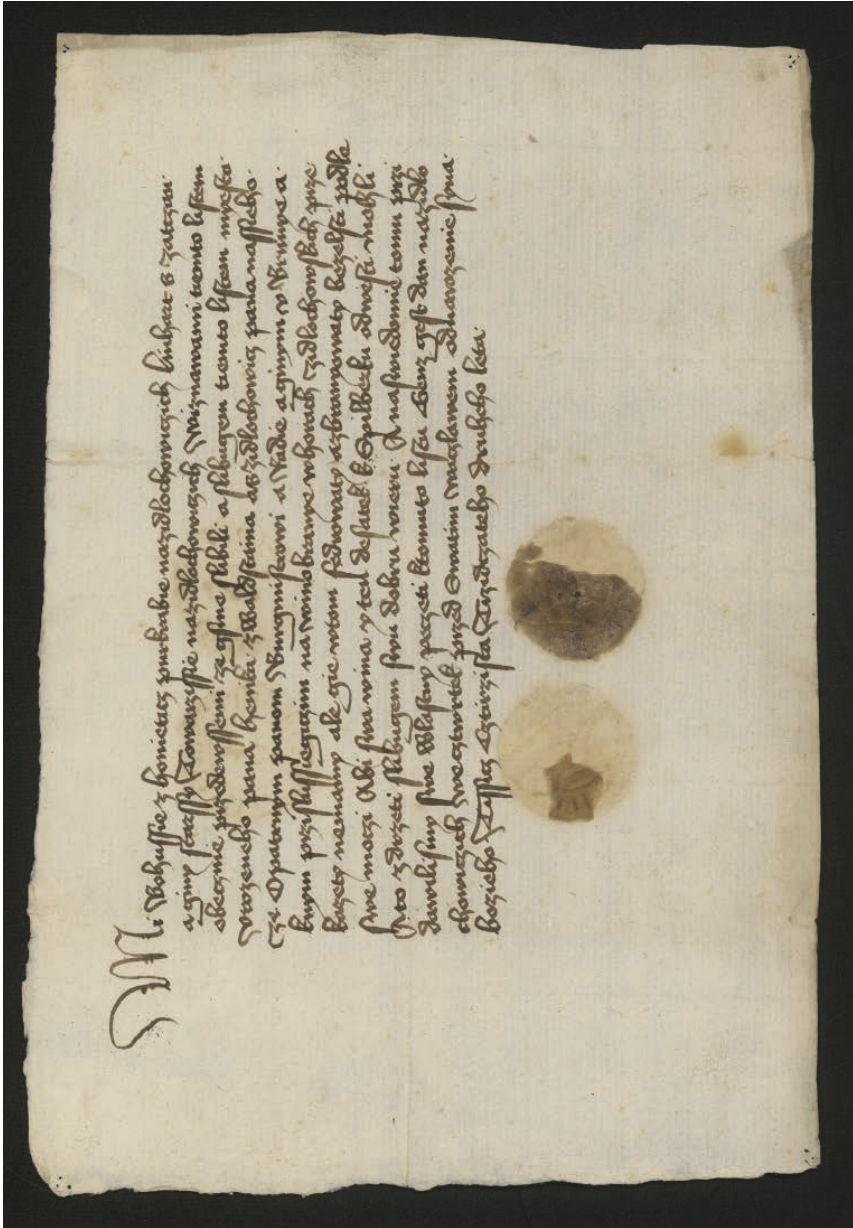 Mi Bohussie z honieticz purkrabie nazidlochowiczich linhart
a giny starssy Towarzissie nazidlochowiczich Wiznawami tiemto listem
obecznie przedewssemi ze gsme slibili a slibugem tiemto listem miesto
Vrozeneho pana hynka z Waldsteina azzidlochowicz pana nasseho
cze Opatrnym panom Burgmistrowi a Radie aginym v Brunye a
knym przislussiegiczim na winobranye whorach zidlochowskich prze
kazety nemamy ale gie wtom fedrowaty azbranyowaty bezelsti podle
swe moczi Aby swa wina y ten desatek k Spilberku odwesti mohli
A to zdrzeti slibugem swu dobru wieru A naswiedomie tomu przi
dawilismy swe Wlastny peczeti ktomuto listu Genz gest dan nazidlo
chowiczich we cztwrtek przed Swatim waczlawem odnarozenie syna
bozieho Tissicz Cztirzista Trzidczateho druheho leta